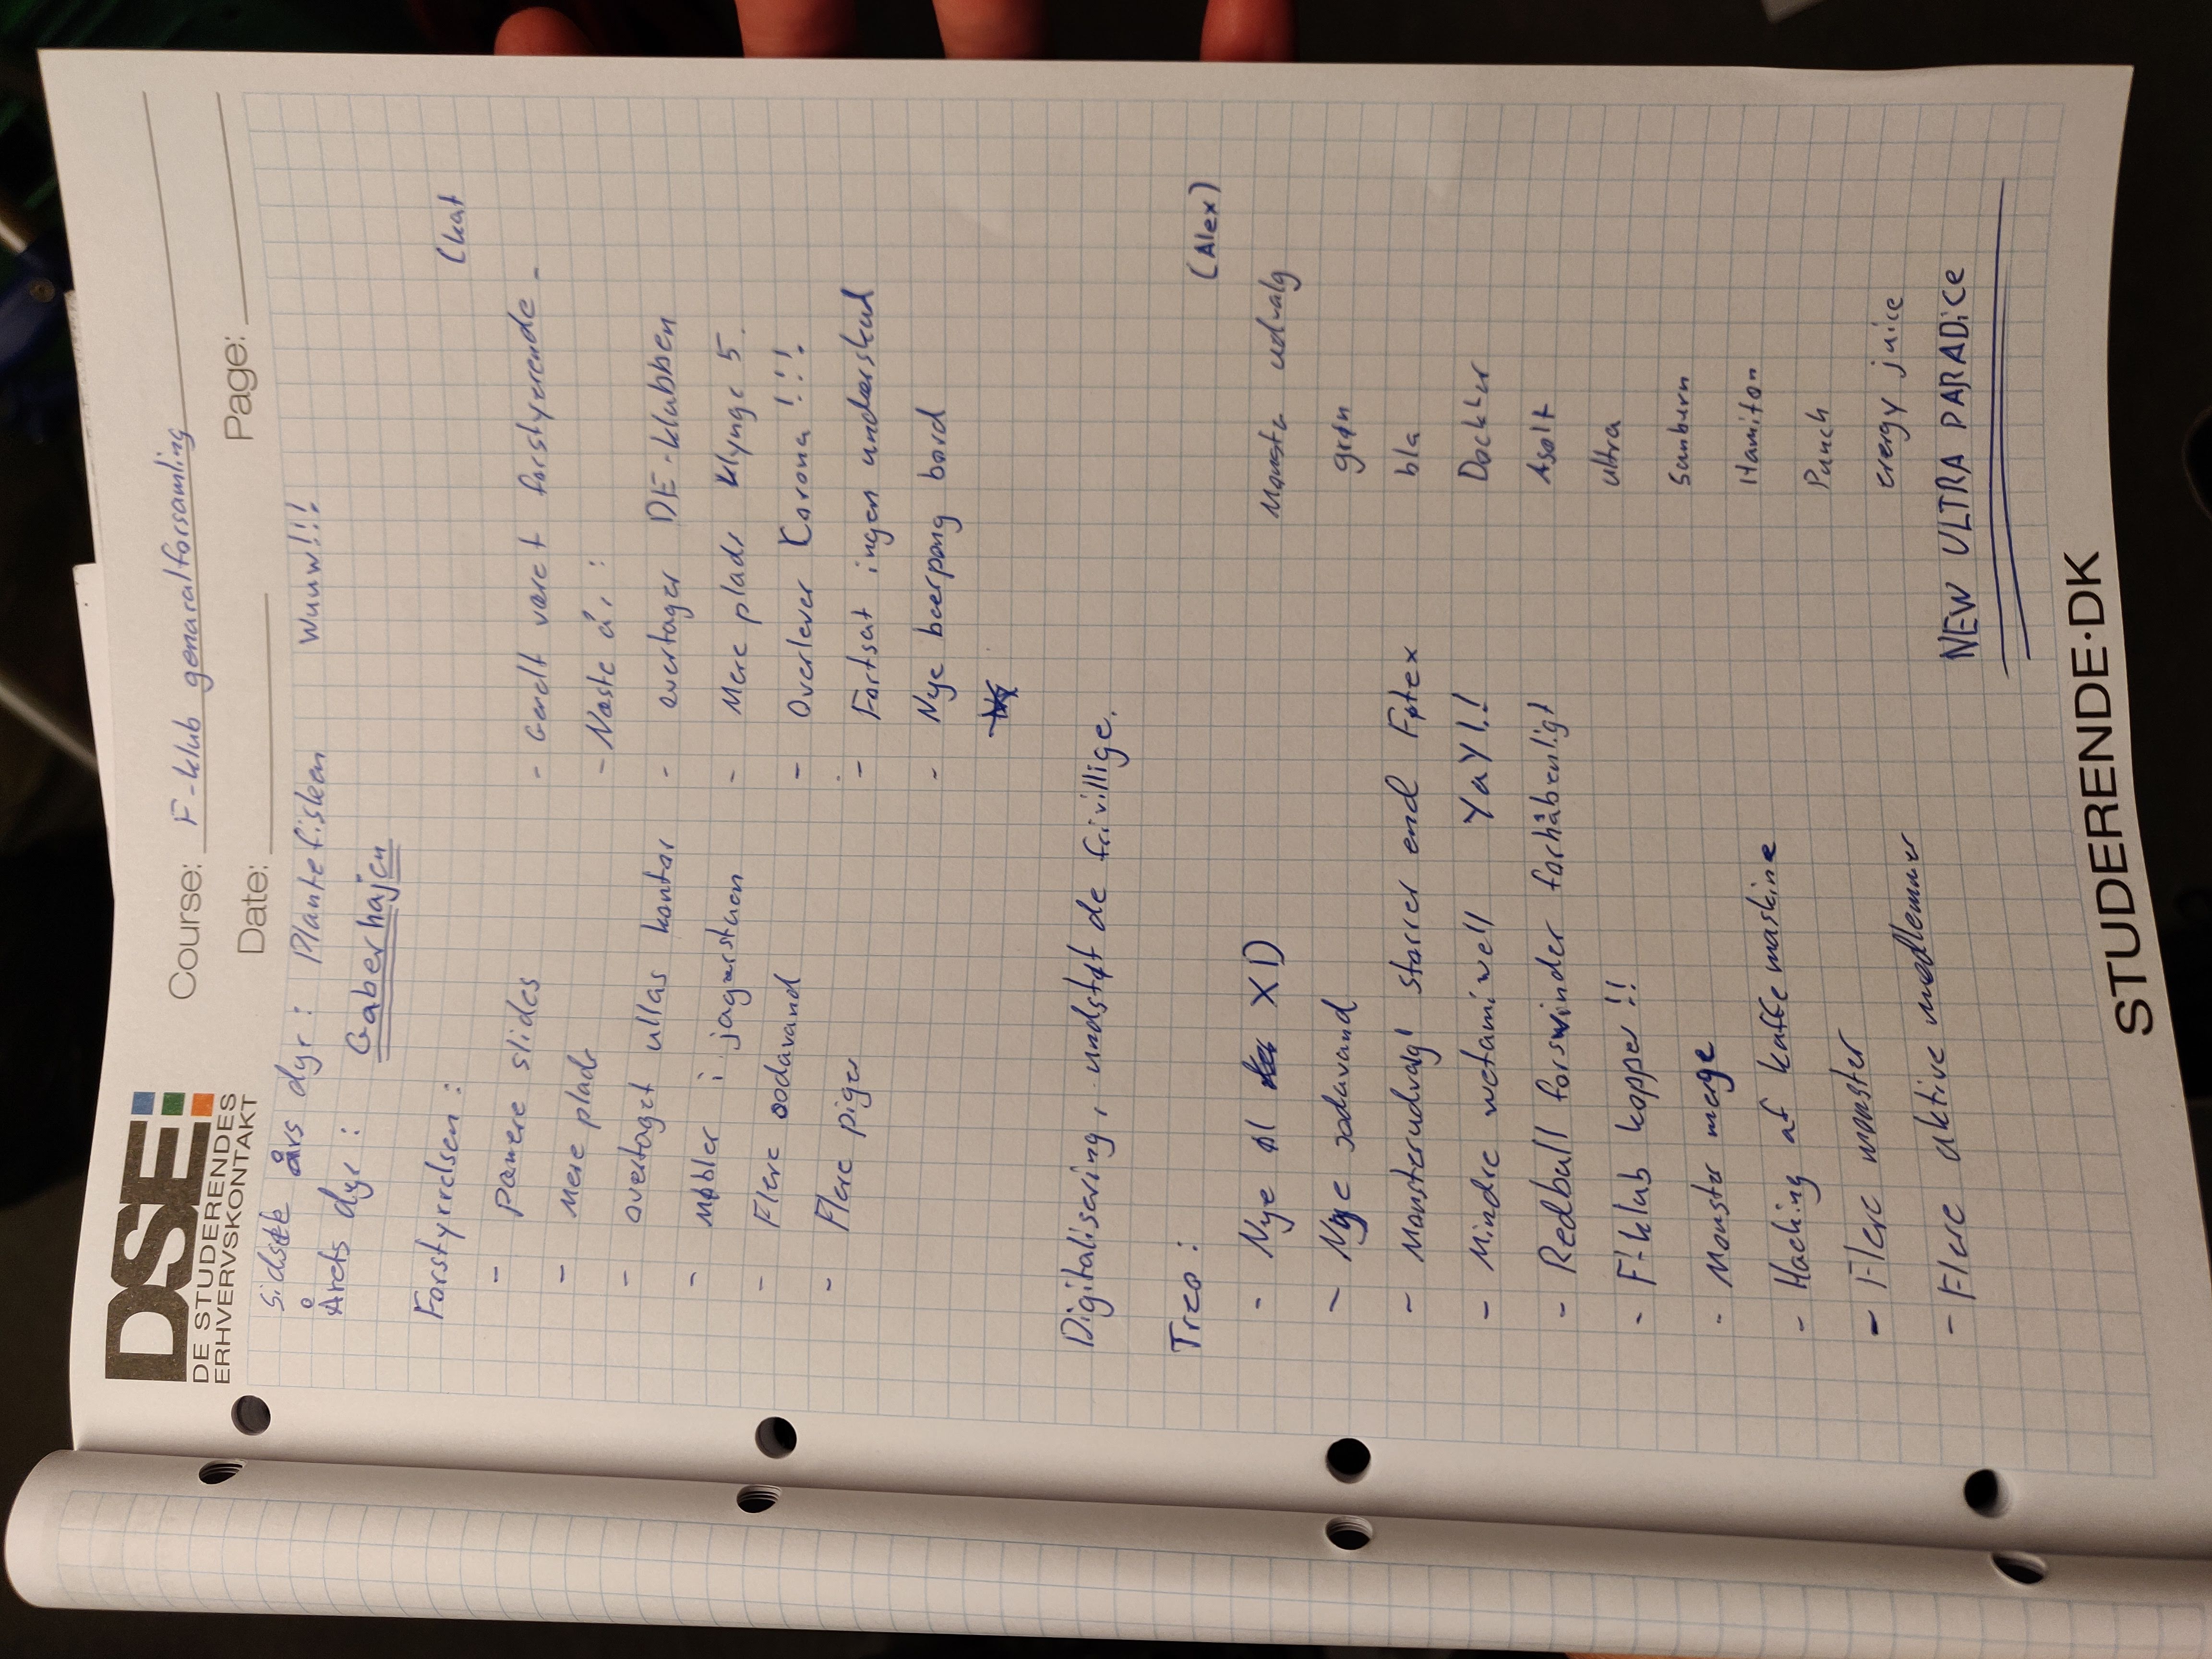 DSE
DE STUDERENDES
ERHVERVSKONTAKT
Course: F-klub genaralforsamling
Date: Page:
Sidste års dyr: Plantefisken wuuw!!!
Årets dyr: Gaberhajen
Forstyrrelsen: (kat
- Pænere slides
- Mere plads
- overtaget ullas kontor
- Møbler i jagerstuen
- Flere sodavand
- Flere piger
- Gerelt været forstyrende -
- Næste år:
- overtager DE-klubben
- Mere plads klynge 5.
- Overlever Corona!!!
- Fortsat ingen underskud
- Nye beerpong bord
Digitalisering, undstøt de frivillige.
Treo: (Alex)
- Nye øl XD
- Nye sodavand
- Monsterudvagl størrer end Føtex
- Mindre vetamiwell YaY!!
- Redbull forsvinder forhåbenligt
- F-klub kopper!!
- Monster merge
- Hacking af kaffe maskine
- Flere monster
- Flere aktive medlemmer
Monster udvalg
grøn
bla
Docktor
Asolt
ultra
Sunburn
Hamiton
Punch
erergy juice
NEW ULTRA PARADiCE
STUDERENDE·DK